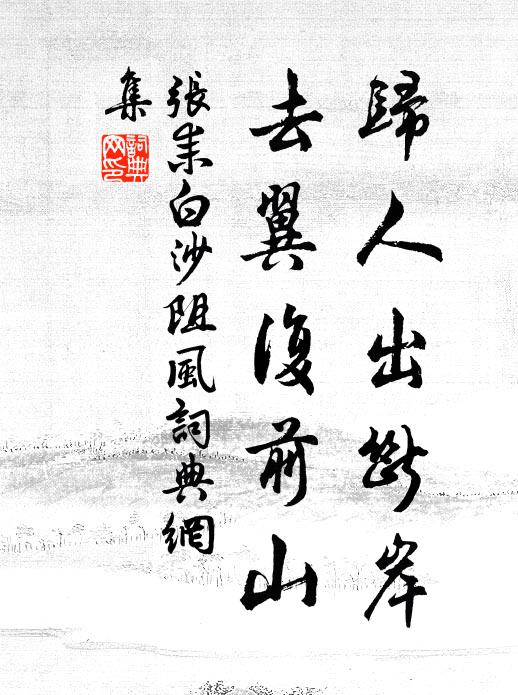 歸人出斷岸
去翼復前山
張耒白沙阻風詞典網
集
詞典
网印